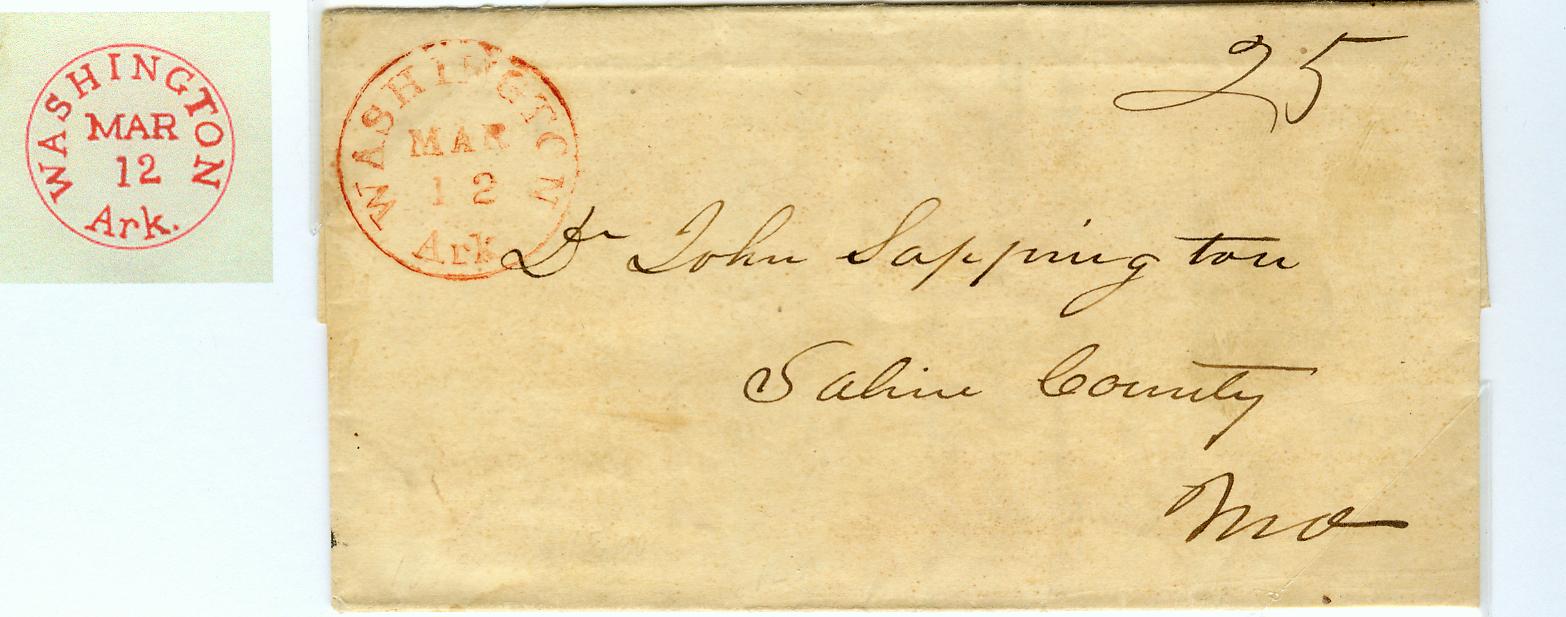 WASHINGTON
MAR
12
Ark.
WASHINGTON
MAR
12
Ark
25
Dr John Sappington
Saline County
Mo